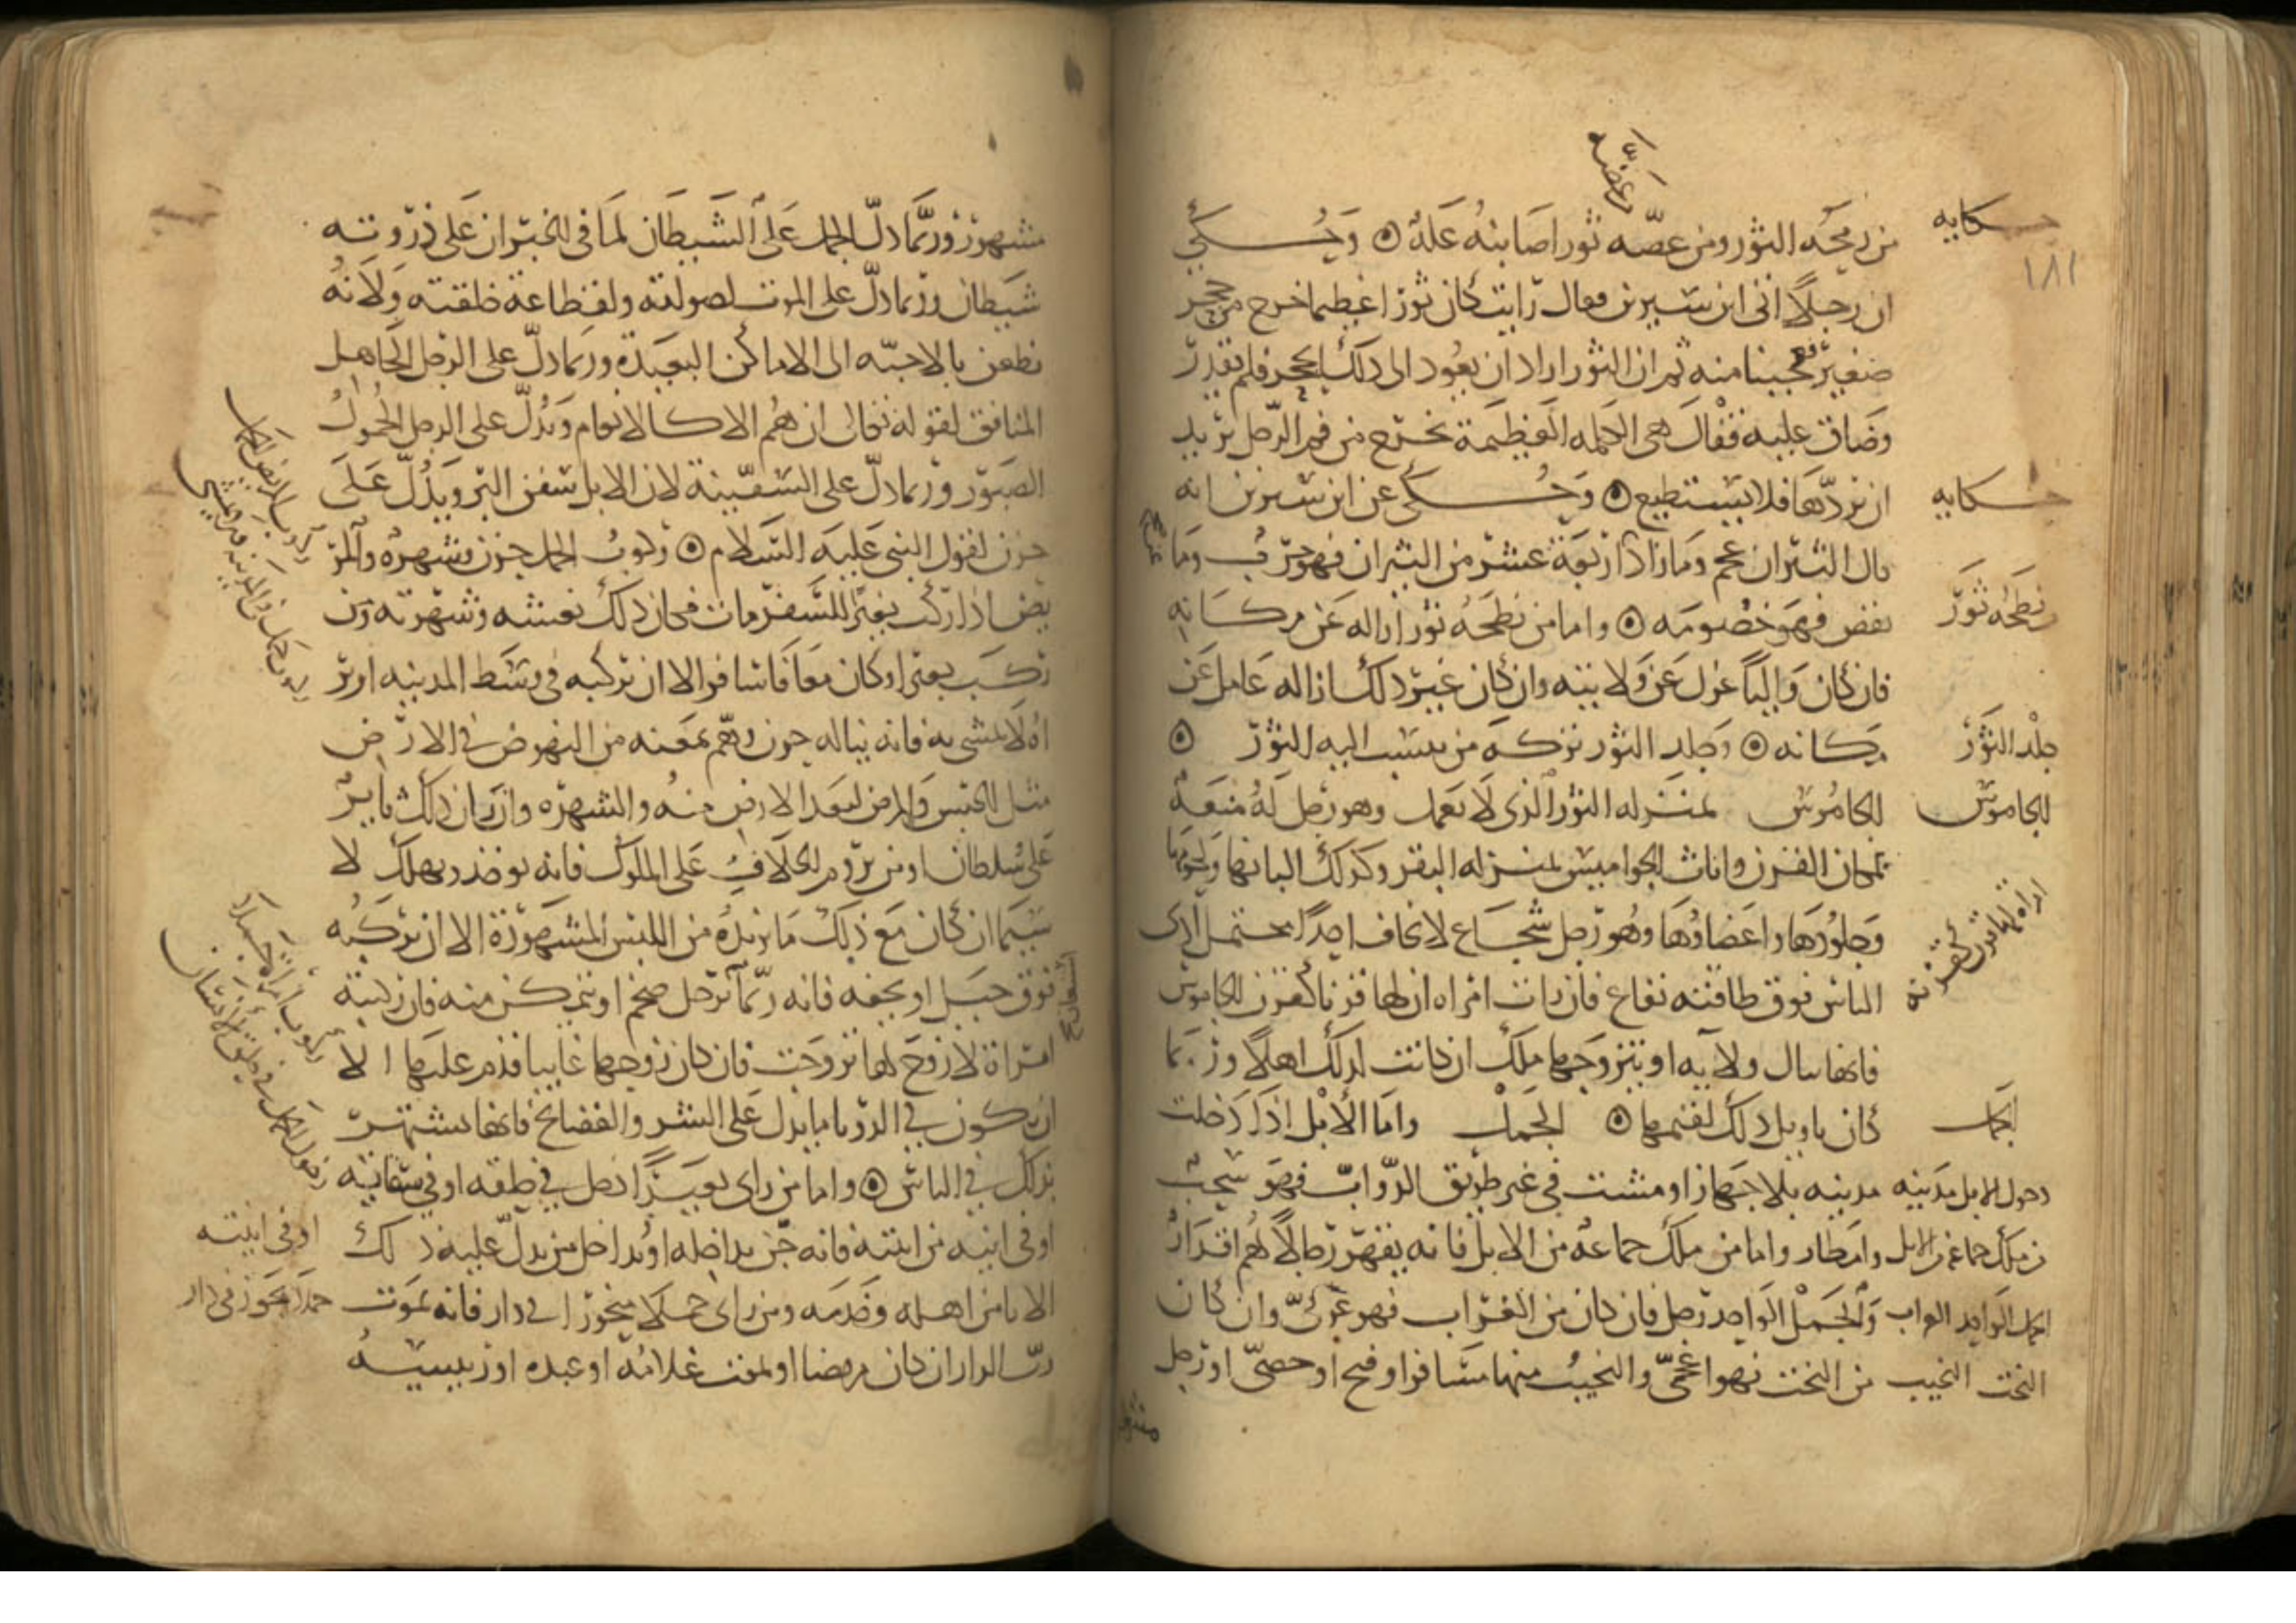 من رمحه الثور ومن عضه ثور اصابته علة ⊙ وحكي
ان رجلا اتى ابن سيرين فقال رايت كان ثورا عظيما خرج من جحر
صغير فعجبنا منه ثم ان الثور اراد ان يعود الى ذلك الجحر فلم يقدر
وضاق عليه فقال هي الكلمة العظيمة تخرج من فم الرجل يريد
ان يردها فلا يستطيع ⊙ وحكي عن ابن سيرين انه
قال الثيران عجم وما زاد اربعة عشر من الثيران فهو حرب وما
نقص فهو خصومه ⊙ واما من نطحه ثور ازاله عن مكانه
فان كان واليا عزل عن ولايته وان كان غير ذلك ازاله عامل عن
مكانه ⊙ وجلد الثور تركة من ينسب اليه الثور ⊙
الجاموس بمنزلة الثور الذي لا يعمل وهو رجل له منعة
لمكان القرن واناث الجواميس بمنزله البقر وكذلك البانها ولحومها
وجلودها واعضاؤها وهو رجل شجاع لا يخاف احدا يحتمل اذى
الناس فوق طاقته نفاع فان رات امراه ان لها قرنا كقرن الجاموس
فانها تنال ولايه او يتزوجها ملك ان كانت لذلك اهلا وربما
كان تاويل ذلك لقيمها ⊙ الجمل واما الابل اذا دخلت
مدينه بلا جهاز او مشت في غير طريق الدواب فهو سحب
وامطار واما من ملك جماعه من الابل فانه يقهر رجالا لهم اقدار
والجمل الواحد رجل فان كان من العراب فهو عربي وان كان
من البخت فهو اعجمي والنجيب منها مسافر او فيج او خصي او رجل
حكايه
١٨١
حكايه
نطحه ثور
جلد الثور
الجاموس
الجمل
دخول الابل مدينه
من ملك جماعه من الابل
الجمل الواحد العراب
البخت النجيب
مشهور وربما دل الجمل على الشيطان لما في الخبر ان على ذروته
شيطان وربما دل على الموت لصولته ولفظاعة خلقته ولانه
يظعن بالاحبه الى الاماكن البعيدة وربما دل على الرجل الجاهل
المنافق لقوله تعالى ان هم الا كالانعام ويدل على الرجل الحمول
الصبور وربما دل على السفينة لان الابل سفن البر ويدل على
حزن لقول النبي عليه السلام ⊙ ركوب الجمل حزن وشهره والمر
يض اذا ركب بعيرا للسفر مات فكان ذلك نعشه وشهرته ومن
ركب بعيرا وكان معافا سافر الا ان تركبه في وسط المدينه او ير
اه لا يمشي به فانه يناله حزن وهم يمنعه من النهوض في الارض
مثل الحبس والمرض لبعد الارض منه والشهره وان كان ذلك ثاير
على سلطان او من يروم الخلاف على الملوك فانه يوخذ ويهلك لا
سيما ان كان مع ذلك ما يزيده من اللبس المشهورة الا ان تركبه
فوق جبل او بحفه فانه ربما رحل ضخم او يتمكن منه فان ركبته
امراة لا زوج لها تزوجت فان كان زوجها غايبا قدم عليها الا
ان يكون في الرويا ما يدل على الشر والفضايح فانها تشتهر
بذلك في الناس ⊙ واما من راى بعيرا دخل في حلقه او في سقايته
او في انيه من انيته فانه جن يداخله او يداخل من يدل عليه ذلك
الانا من اهله وخدمه ومن راى جملا منحورا في دار فانه يموت
رب الدار ان كان مريضا او يموت غلامه او عبده او رييسه
او في انيته
جملا منحورا في دار